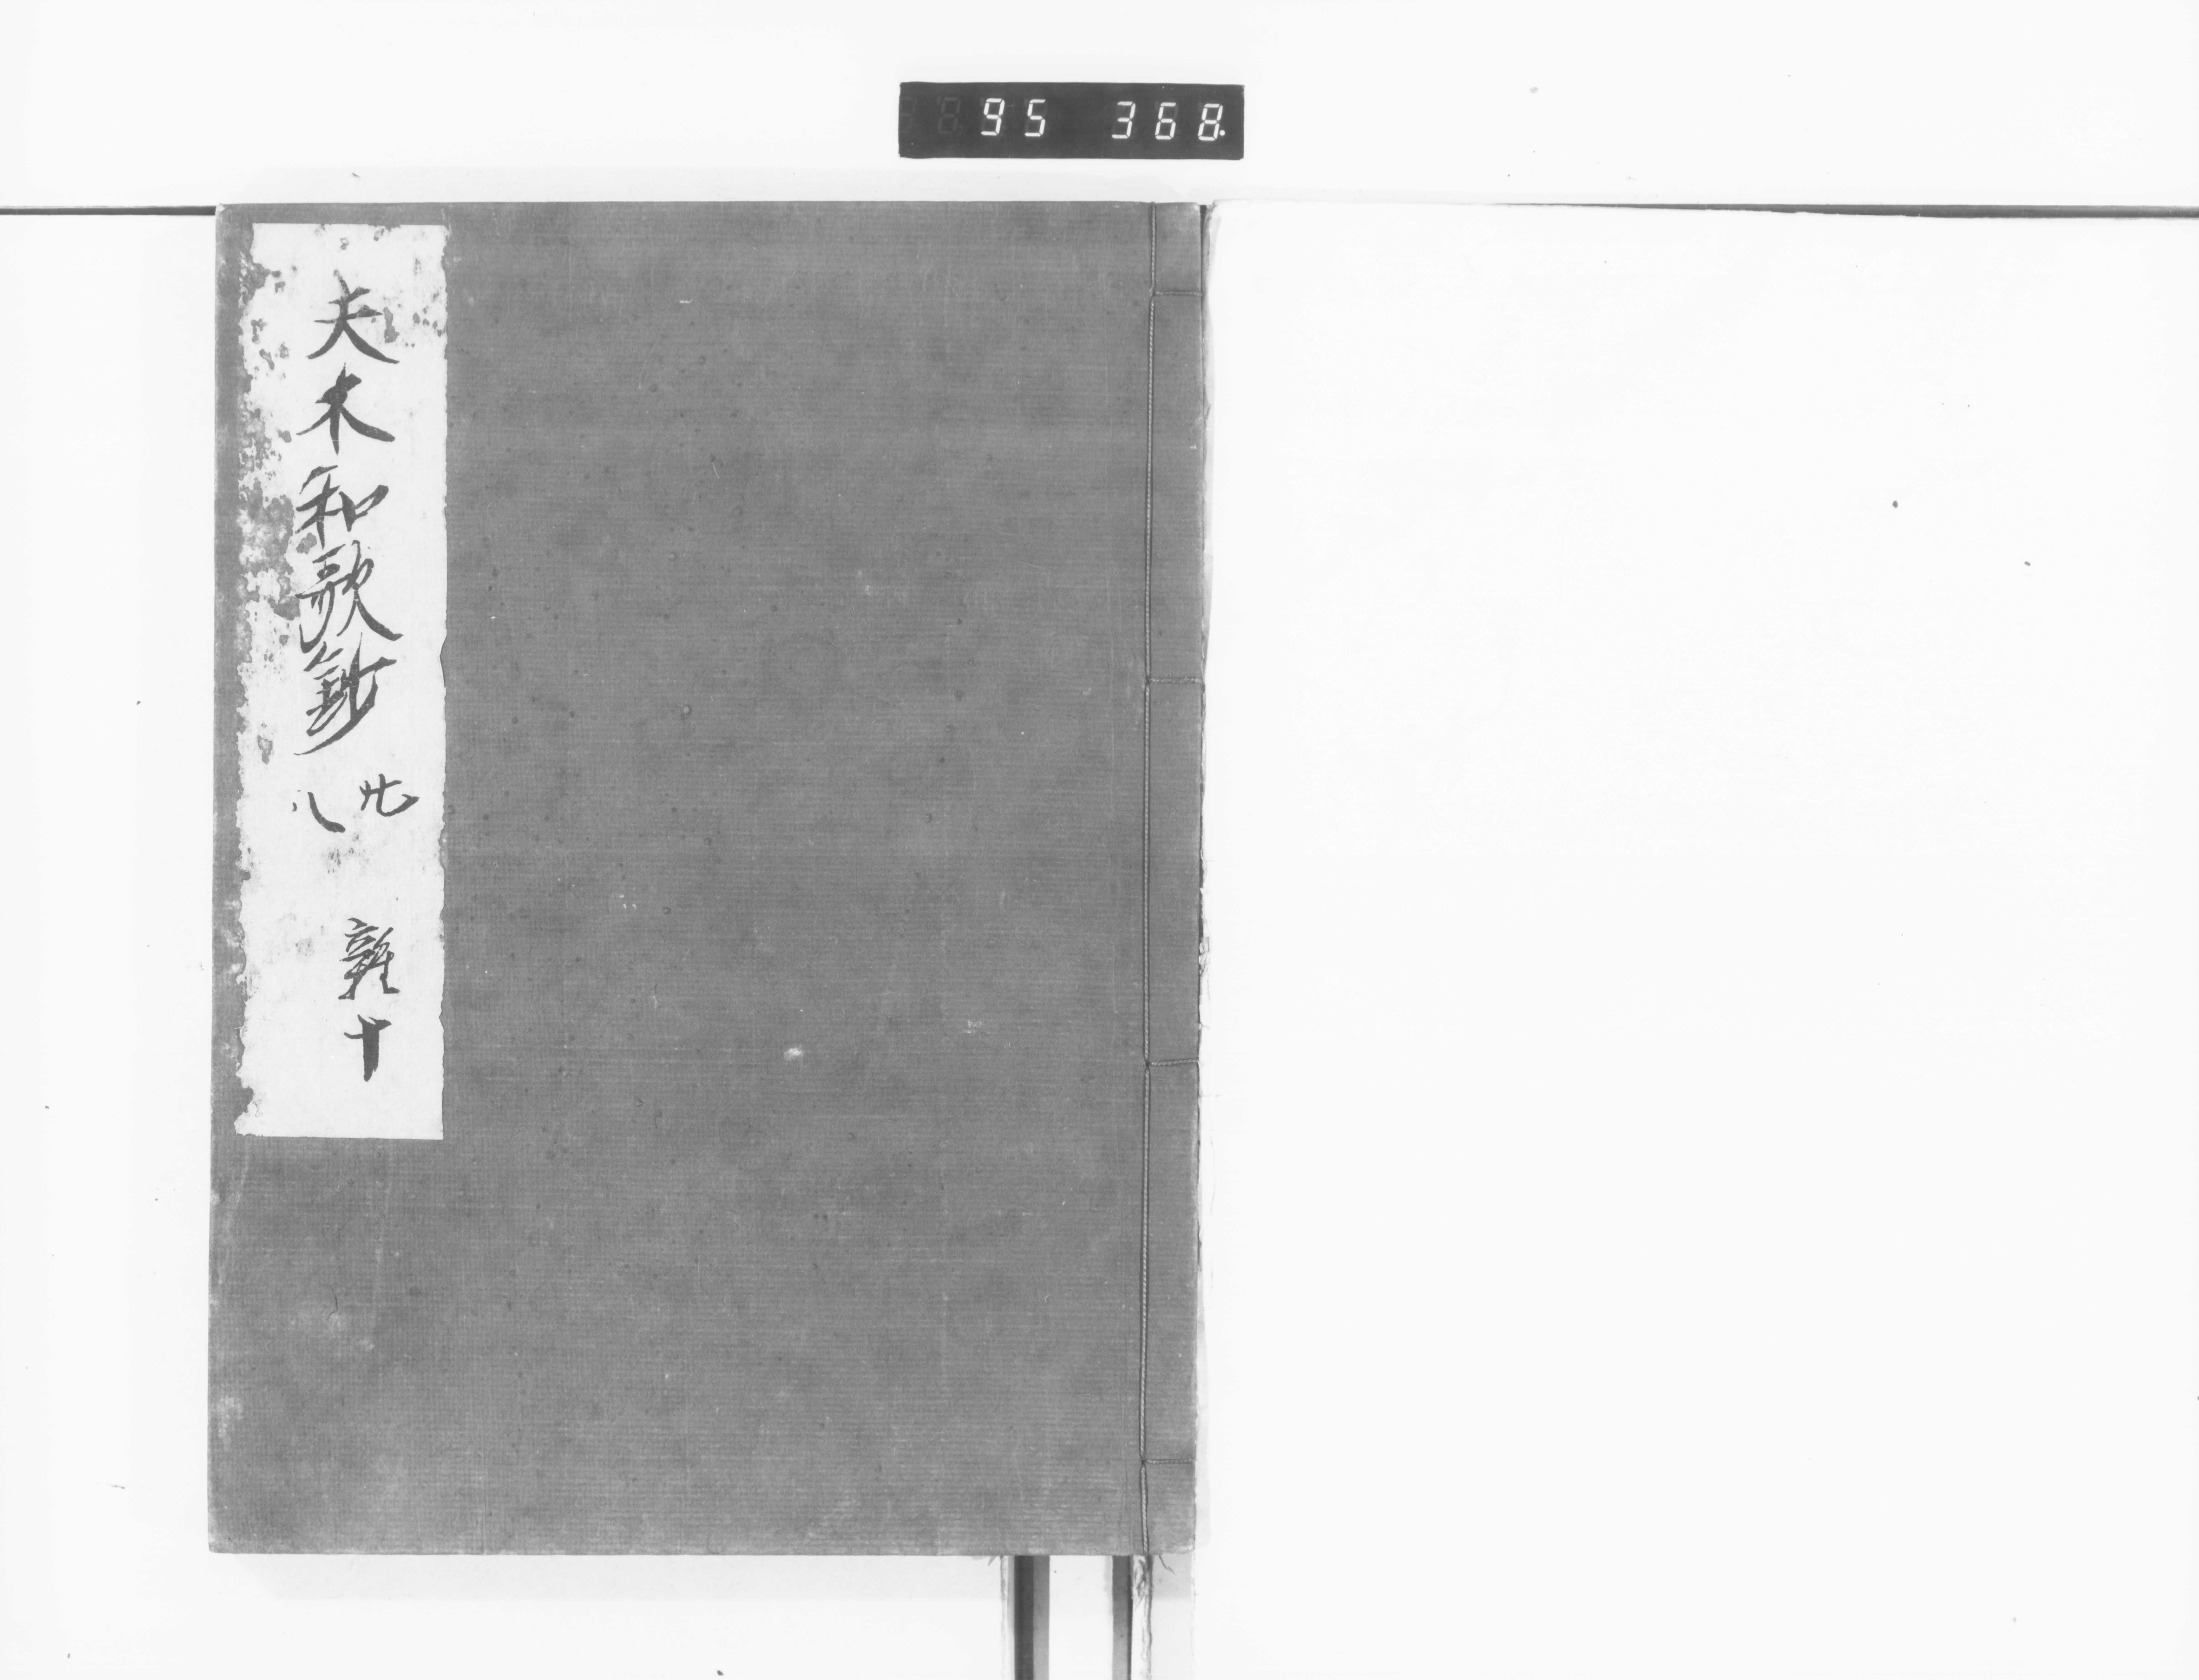 95 368.
夫木和歌鈔 廿八 雜十